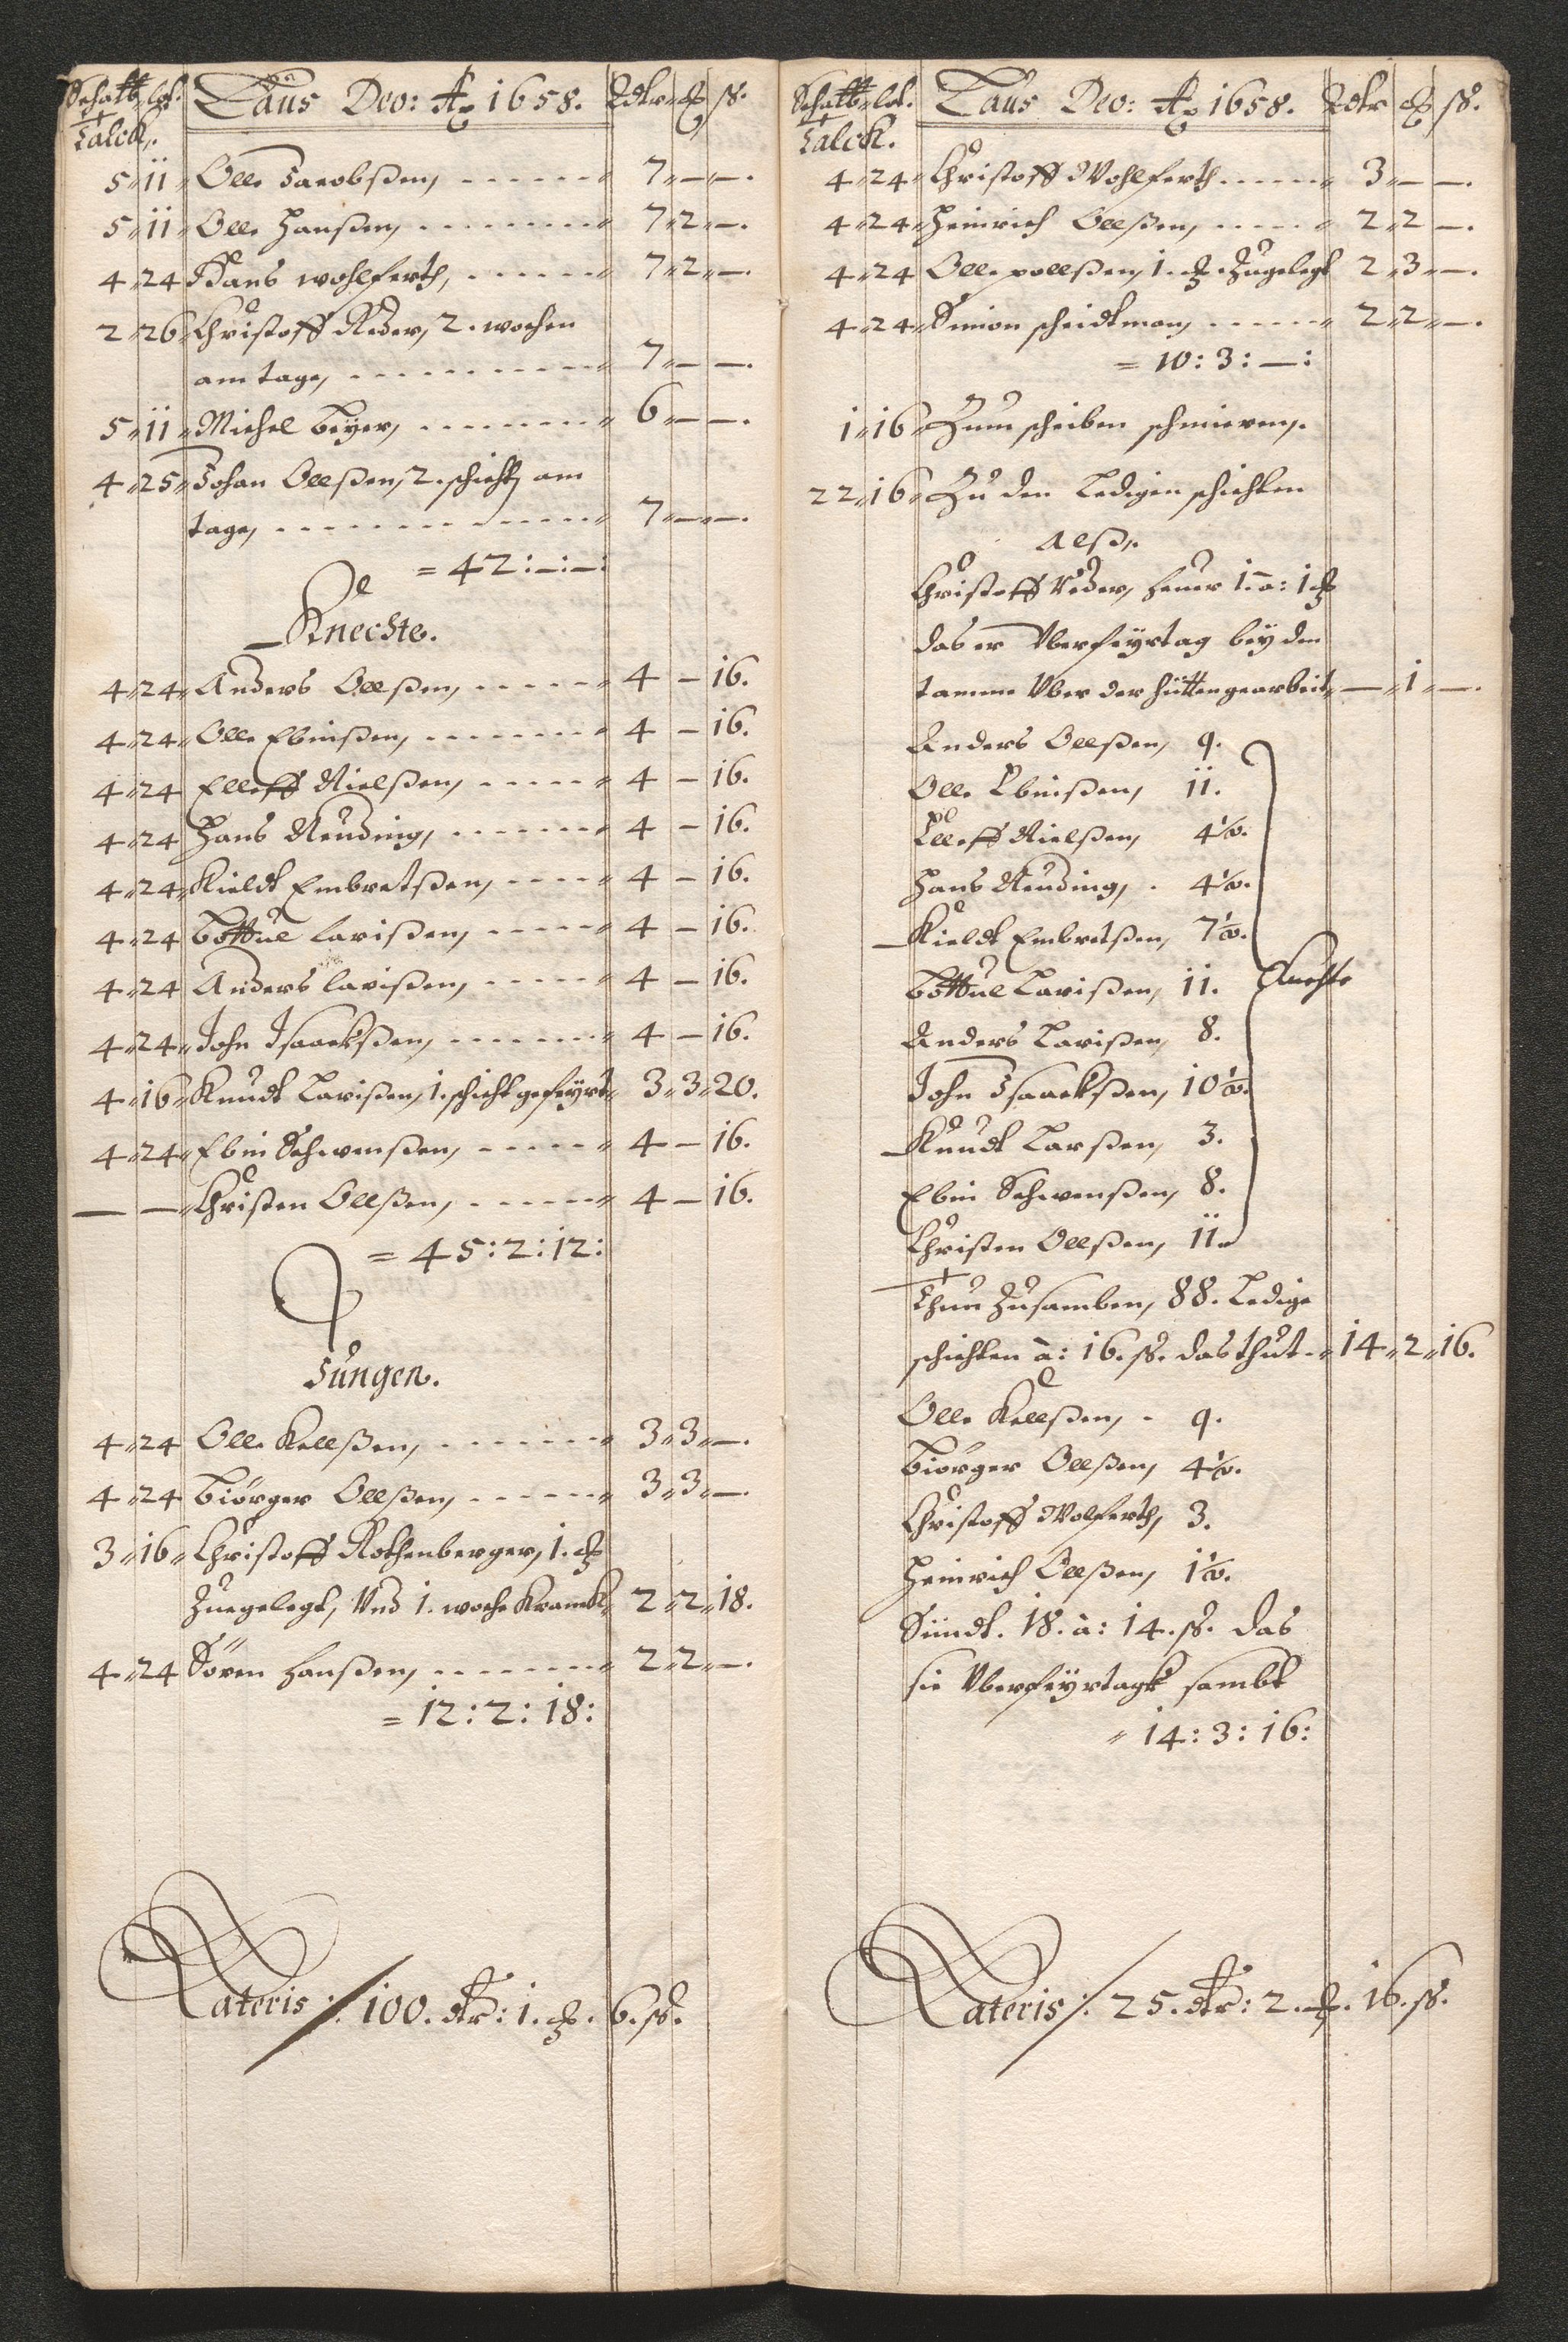 Schatt. lot. Laus Deo: Ao 1658. Rdlr ort ß.
Talck.
5 11 Olle Jacobßen, 7 — —.
5 11 Olle Hanßen, 7 2 —.
4 24 Hans wohlferth, 7 2 —.
2 26 Christoff Röder, 2. wochen
am tage, 7 — —.
5 11 Michel beÿer, 6 — —.
4 25 Johan Olleßen, 2. schicht am
tage, 7 — —.
= 42:—:—:
Knechte.
4 24 Anders Olleßen, 4 — 16.
4 24 Olle Ebnißen, 4 — 16.
4 24 Elleff Nielßen, 4 — 16.
4 24 Hans Neuding, 4 — 16.
4 24 Kieldt Embretßen, 4 — 16.
4 24 Bottul larißen, 4 — 16.
4 24 Anders larißen, 4 — 16.
4 24 John Isaackßen, 4 — 16.
4 16 Knudt Larißen, 1. schicht gefeÿrt 3 3 20.
4 24 Ebin Schwenßen, 4 — 16.
— — Christen Olleßen, 4 — 16.
= 45:2:12:
Jungen.
4 24 Olle Kelleßen, 3 3 —.
4 24 Biörger Olleßen, 3 3 —.
3 16 Christoff Rothenberger, 1. ort
Zuegelegt, Und 1. woche Kranck, 2 2 18.
4 24 Sören Hanßen, 2 2 —.
= 12:2:18:
Lateris: /: 100. dlr: 1. ort. 6. ß.
Schatt. lot. Laus Deo: Ao 1658. Rdlr ort ß.
Talck.
4 24 Christoff Wohlferth 3 — —.
4 24 Heinrich Olleßen, 2 2 —.
4 24 Olle polleßen, 1. ort. Zugelegt 2 3 —.
4 24 Simon scheidtman, 2 2 —.
= 10:3:—:
1 16 Zum scheiben schmieren,.
22 16 Zu den Ledigen schichten
Alß,.
Christoff Röder, 1. à: 1 ort
das er Uberfeÿrtag beÿ den
tamme Uber der hütten gearbeit, — 1 —.
Anders Olleßen, 9.
Olle Ebnißen, 11.
Elleff Nielßen, 4½.
Hans Neuding, 4½.
Kieldt Embretßen, 7½.
Bottul Larißen, 11. Knechte
Anders Larißen, 8.
John Isaackßen, 10½.
Knudt Larßen, 3.
Ebin Schwenßen, 8.
Christen Olleßen, 11.
Thun Zusamben, 88. Ledige
schichten à: 16. ß. das thut 14 2 16.
Olle Kelleßen, 9.
Biörger Olleßen, 4½.
Christoff Wolferth, 3.
Heinrich Olleßen, 1½.
Sündt. 18. à: 14. ß. das
sie Uberfeÿrtagk sambt
14:3:16:
Lateris: /: 25. dlr: 2. ort. 16. ß.